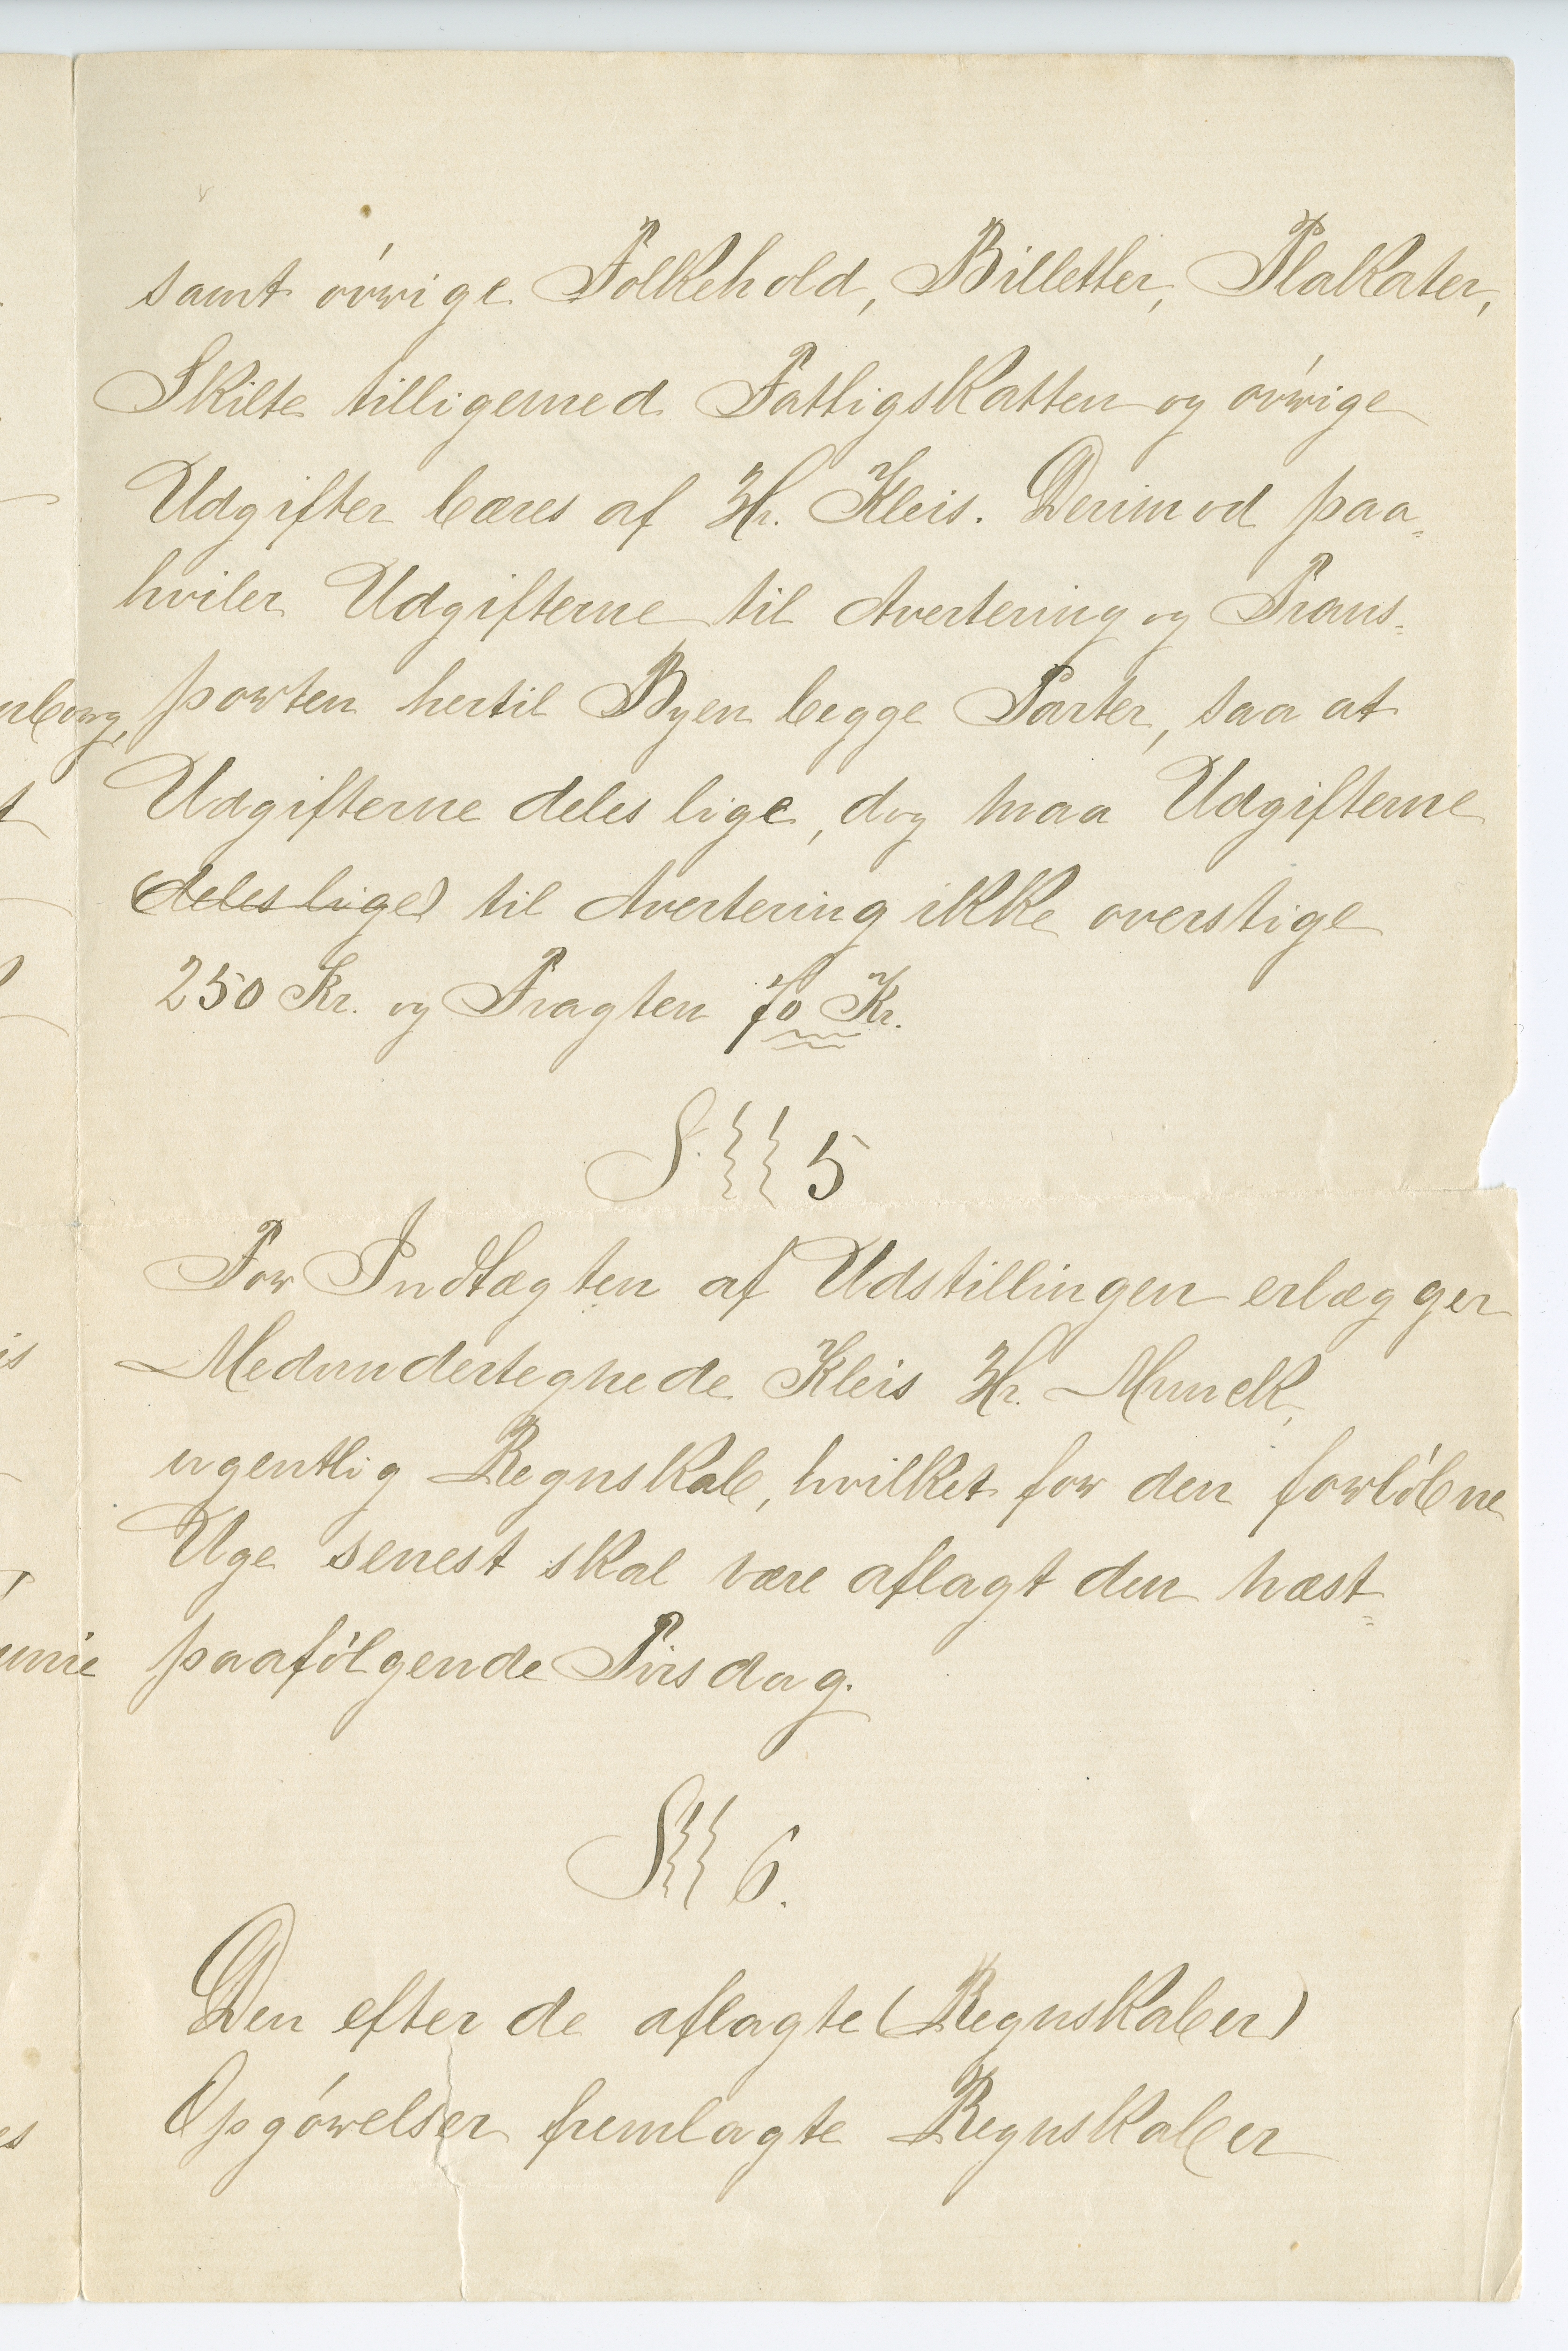 samt øvrige Folkehold, Billetter, Plakater,
Skilte tilligemed Fattigskatten og øvrige
Udgifter bæres af Hr. Kleis. Derimod paa=
hviler Udgifterne til Avertering og Trans=
porten hertil Byen begge Parter, saa at
Udgifterne deles lige, dog maa Udgifterne
(deles lige) til Avertering ikke overstige
250 Kr. og Fragten 70 Kr.
§ 5
For Indtægten af Udstillingen erlægger
Medundertegnede Kleis Hr. Munck,
ugentlig Regnskab, hvilket for den forløbne
Uge senest skal være aflagt den næst=
paafølgende Tirsdag.
§ 6.
Den efter de aflagte (Regnskaber)
Opgørelser fremlagte Regnskaber